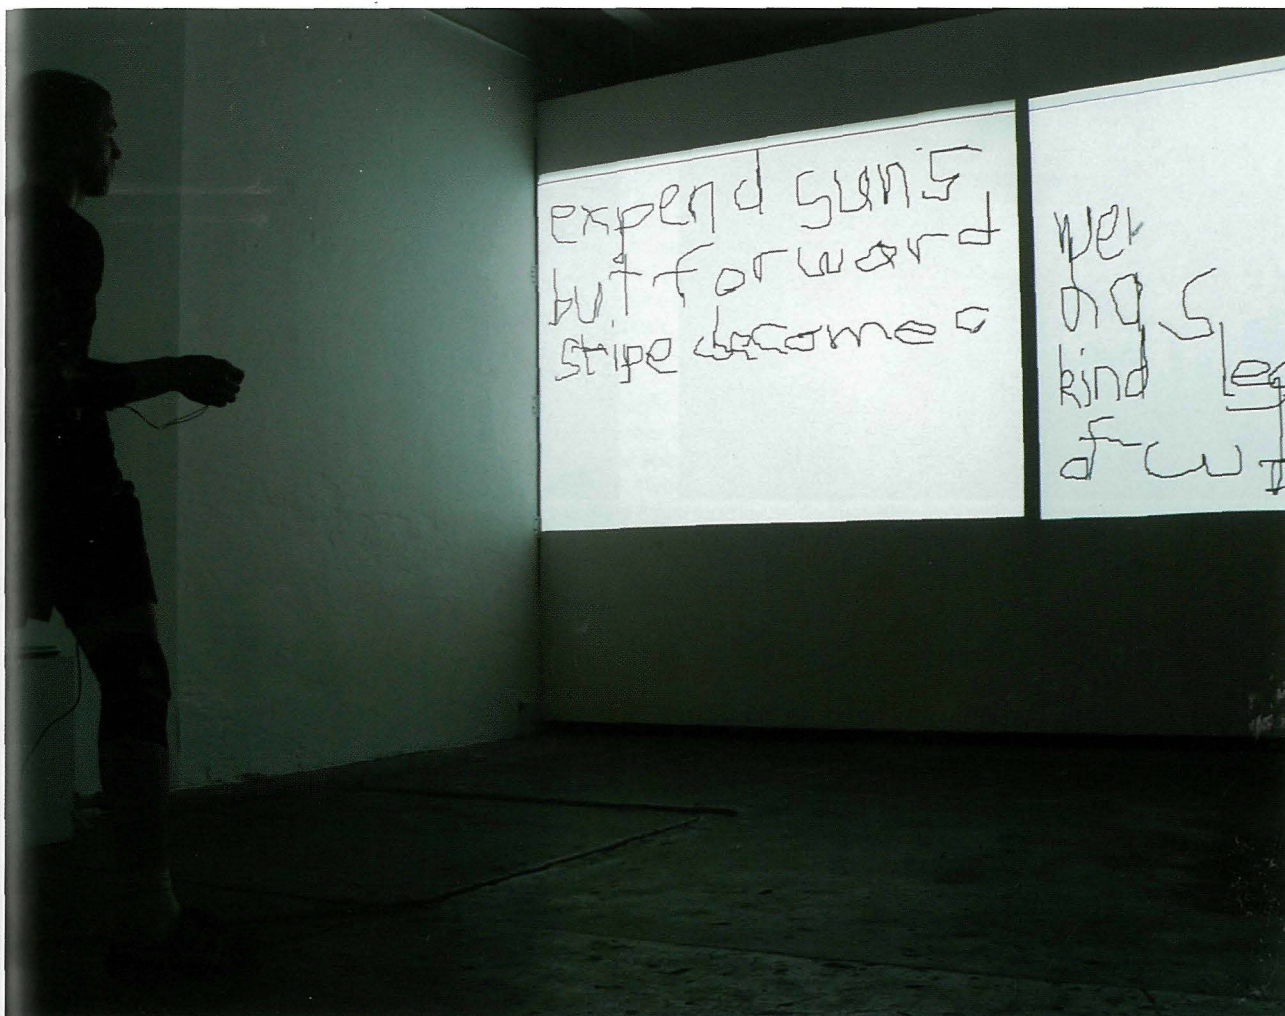 expend sun's
but forward
stripe become a
wer
kind leg
of